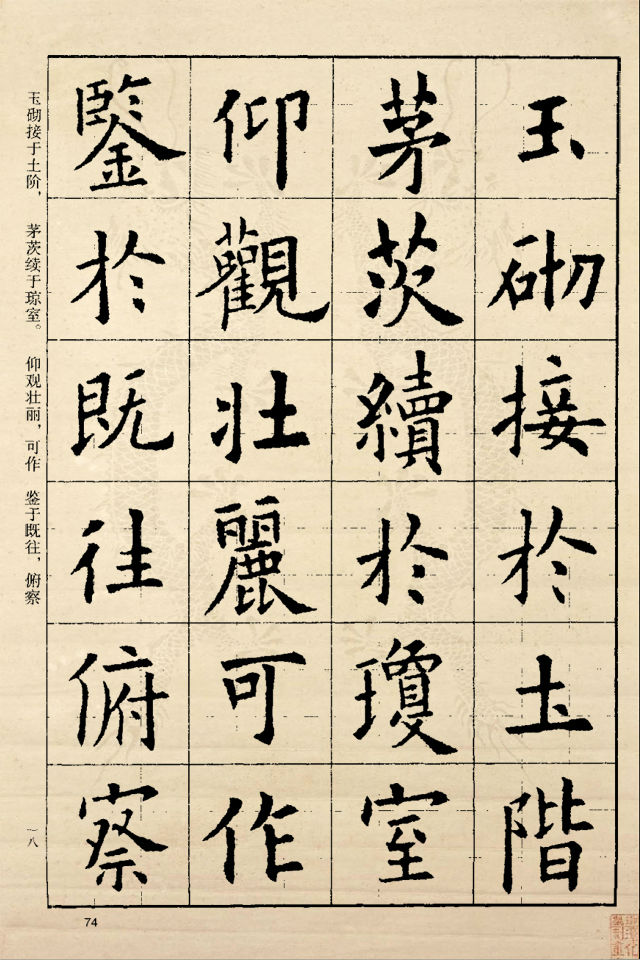 玉砌接於土階
茅茨續於瓊室
仰觀壯麗可作
鑒於既往俯察
玉砌接于土阶，茅茨续于琼室。仰观壮丽，可作鉴于既往，俯察
一八
74